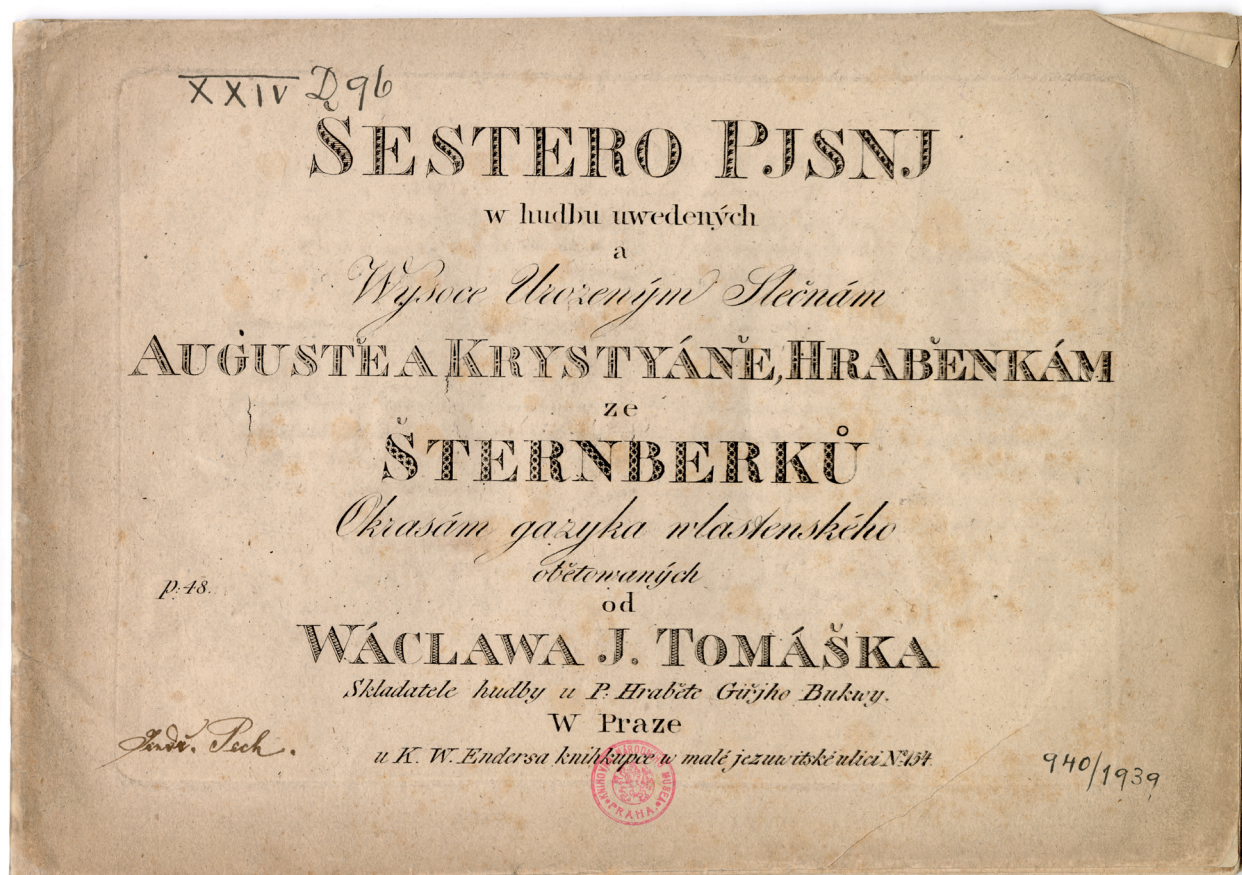 XXIV D 96
ŠESTERO PJSNJ
w hudbu uwedených
a
Wysoce Urozeným Slečnám
AUGUSTĚ A KRYSTYÁNĚ, HRABĚNKÁM
ze
ŠTERNBERKŮ
Okrasám gazyka wlastenského
obětowaných
p. 48.
od
WÁCLAWA J. TOMÁŠKA
Skladatele hudby u P. Hraběte Giřjho Bukwy.
W Praze
Jindř. Pech.
u K. W. Endersa knihkupce w malé jezuwitské ulici No. 154
940/1939
KNIHOVNA NÁRODNÍHO MUSEA PRAHA